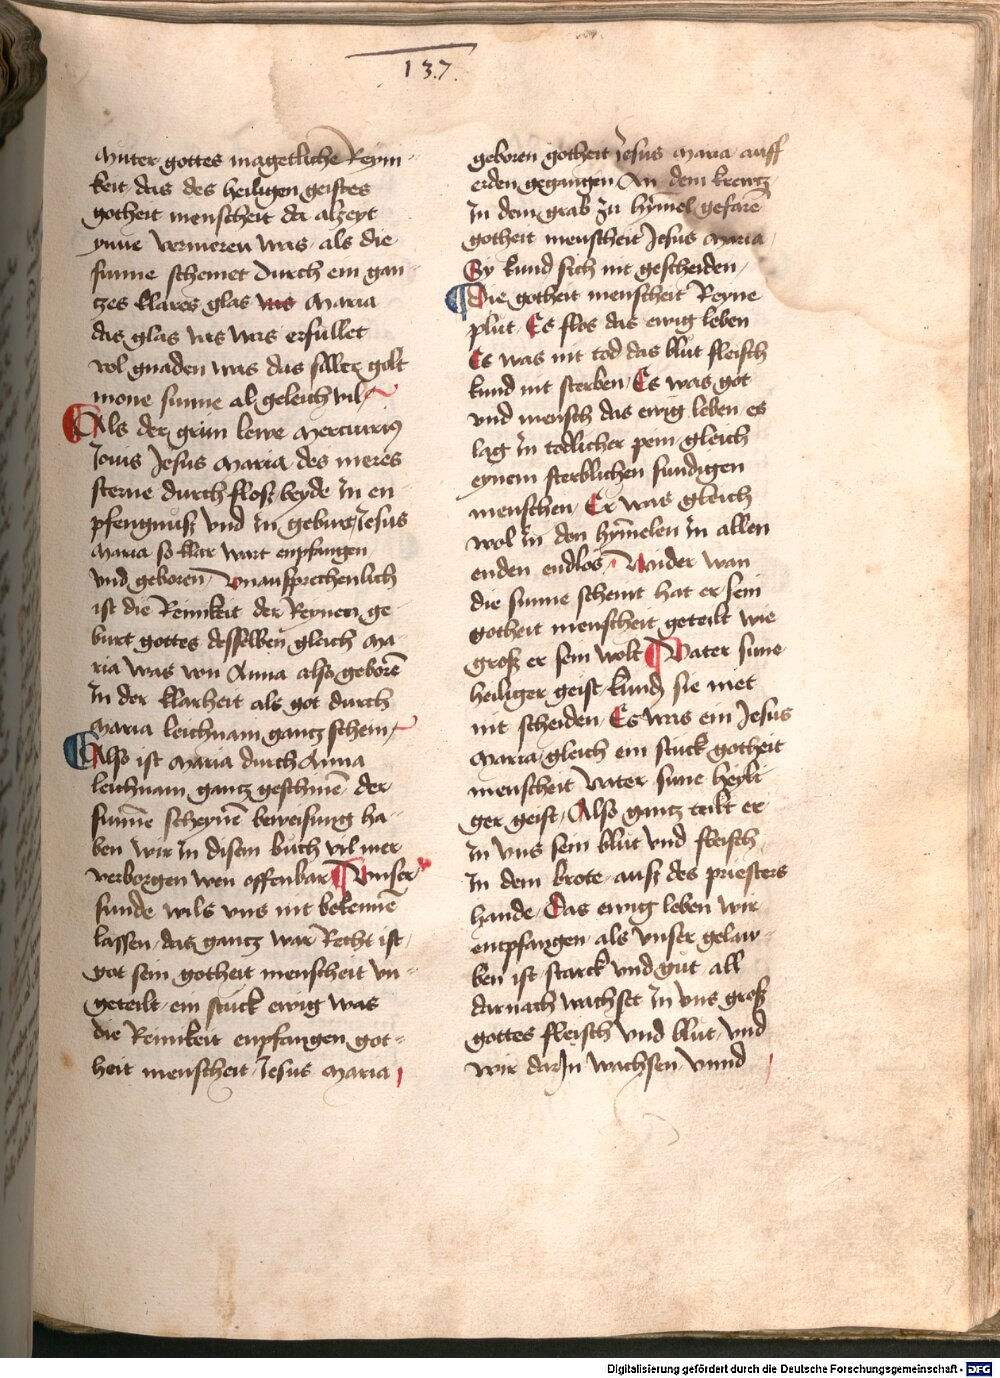 137.
Muter gottes magetliche Reyni-
keit das des heiligen geistes
gotheit menscheit da alzeyt
ynne verineren was als die
sunne scheinet durch ein gan-
tzes klares glas was Maria
das glas was erfullet
vol gnaden was das silber golt
mone sunne al geleich vil
Als der grim lewe Mercurius
Jouis Jesus Maria des meres
sterne durch flosz beyde in en-
pfengnusz vnd in geburt Jesus
Maria so klar wart enpfangen
vnd geboren Vnausprechenlich
ist die Reinikeit der Reynen ge-
burt gottes desselben gleich Ma-
ria was von Anna also geborē
in der klarheit als got durch
Maria leichnam gantz schein
Also ist Maria durch Anna
leichnam gantz geschinē der
sunne scheynē beweisung ha-
ben wir in disem buch vil mer
verborgen wen offenbar Vnser
sunde wils vns nit bekennē
lassen das gantz war Recht ist
got sein gotheit menscheit vn-
geteilt ein stuck ewig was
die Reinikeit enpfangen got-
heit menscheit Jesus Maria
geboren gotheit Jesus Maria auff
erden gegangen An dem krewtz
in dem grab zu hymel gefarē
gotheit menscheit Jesus Maria
Sy kund sich nit gescheiden
Die gotheit menscheit Reyne
plut Es flos das ewig leben
Es was nit tod das blut fleisch
kund nit sterben Es was got
vnd mensch das ewig leben es
lag in todlicher pein gleich
eynem sterblichen sundigen
menschen Er was gleich
wol in den hymelen in allen
enden endlos Wider wan
die sunne scheint hat er sein
gotheit menscheit geteilt wie
grosz er sein wolt Vater sune
heiliger geist kund sie met
nit scheiden Es was ein Jesus
Maria gleich ein stuck gotheit
menscheit vater sune heyli-
ger geist Also gantz teilt er
in vns sein blut vnd fleisch
in dem brote ausz des priesters
hande Das ewig leben wir
entpfangen als vnser gelaw-
ben ist starck vnd gut all
darnach wachset in vns grosz
gottes fleisch vnd blut vnd
wir darin wachsen vnnd
Digitalisierung gefördert durch die Deutsche Forschungsgemeinschaft - DFG